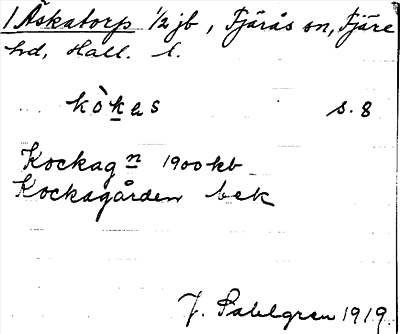 1 Åskatorp 1/2 jb, Fjärås sn, Fjäre
hd, Hall. l.
kòkas s. 8
Kockagn 1900 kb
Kockagården bek
J. Sahlgren 1919